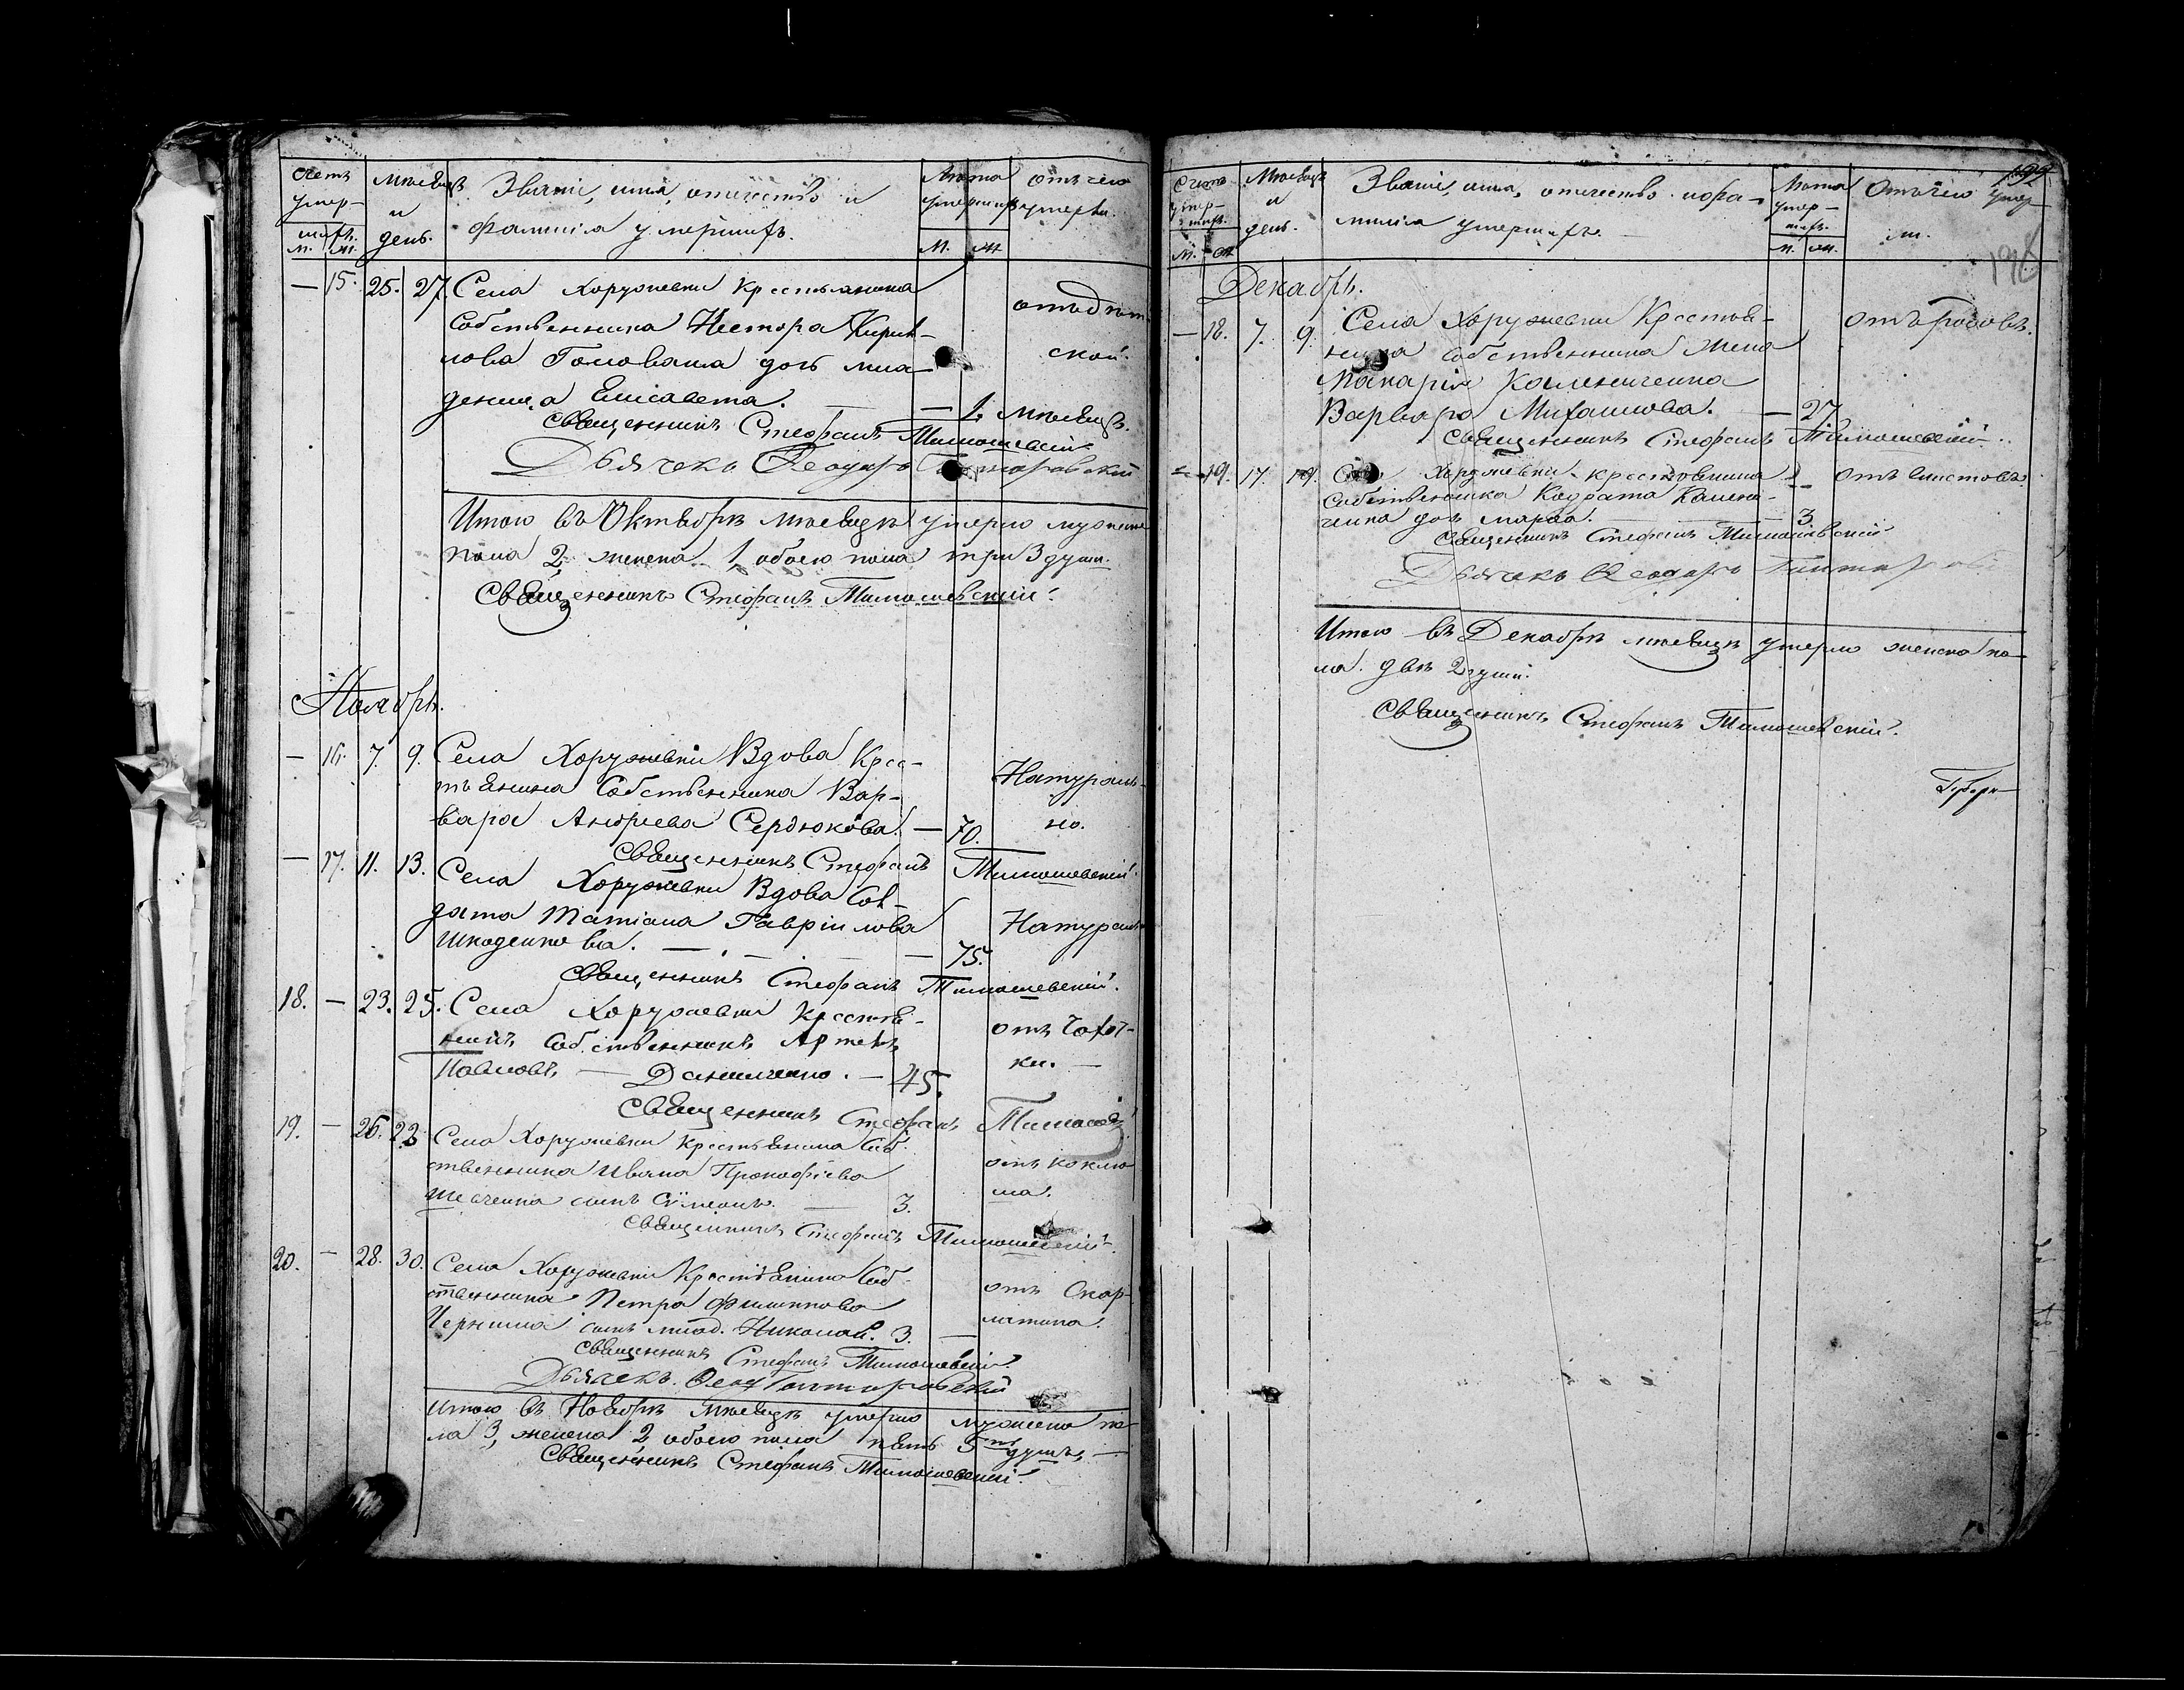 Счетъ умер-
шихъ.
м. ж.
Мѣсяцъ
и
день.
Званіе, имя, отчество и
фамилія умершихъ.
Лѣта
умершихъ
м. ж.
отъ чего
умерли.
— 15. 25. 27. Села Хоружевки Крестьянина
Собственника Нестора Кирил-
лова Головаша дочь мла-
деница Елисавета. — 1. мѣсяцъ.
отъ
ской.
Священникъ Стефанъ Тимошевскій.
Дьячекъ Ѳеодоръ
Итого въ Октябрѣ мѣсяцѣ умерло мужеска
пола 2, женска 1, обоего пола три 3 души.
Священникъ Стефанъ Тимошевскій.
Ноябрь.
— 16. 7. 9. Села Хоружевки Вдова Крес-
тьянина Собственника Вар-
вара Андреева Сердюкова. — 70.
Натураль-
но.
Священникъ Стефанъ Тимошевскій.
— 17. 11. 13. Села Хоружевки Вдова Сол-
дата Татіана Гавріилова
Шкоденкова. — 75.
Натураль
Священникъ Стефанъ Тимошевскій.
18. — 23. 25. Села Хоружевки Крестья-
нинъ Собственникъ Артемъ
Павловъ — Данильченко. — 45.
отъ Чахот-
ки. —
Священникъ Стефанъ
19. — 26. Села Хоружевки Крестьянина Соб-
ственника Ивана Прокофіева
сынъ Сѵмеонъ. — 3.
отъ коклю
ша.
Священникъ Стефанъ Тимошевскій.
20. — 28. 30. Села Хоружевки Крестьянина Соб-
ственника Петра Филиппова
сынъ млад. Николай. 3. —
отъ Скар-
латина.
Священникъ Стефанъ Тимошевскій.
Дьячекъ
Итого въ Ноябрѣ мѣсяцѣ умерло мужеска по-
ла 3, женска 2 обоего пола пять 5 душъ. —
Священникъ Стефанъ Тимошевскій.
Счетъ
умер-
шихъ.
м. ж.
Мѣсяцъ
и
день.
Званіе, имя, отчество и фа-
милія умершихъ.
Лѣта
умер-
шихъ.
м. ж.
Отъ чего умер-
ли.
Декабрь.
— 18. 7. 9. Села Хоружевки Крестья-
нина собственника жена
Макарія Калениченка
Варвара Михайлова. — 27
отъ родовъ.
Священникъ Стефанъ Тимошевскій.
— 19. 17. 19. Хоружевки крестьянина
собственника Кодрата Калени-
ченка дочь Марѳа. — 3.
отъ глистовъ.
Священникъ Стефанъ Тимошевскій
Дьячекъ Ѳеодоръ
Итого въ Декабрѣ мѣсяцѣ умерло женска по-
ла двѣ 2 души.
Священникъ Стефанъ Тимошевскій.